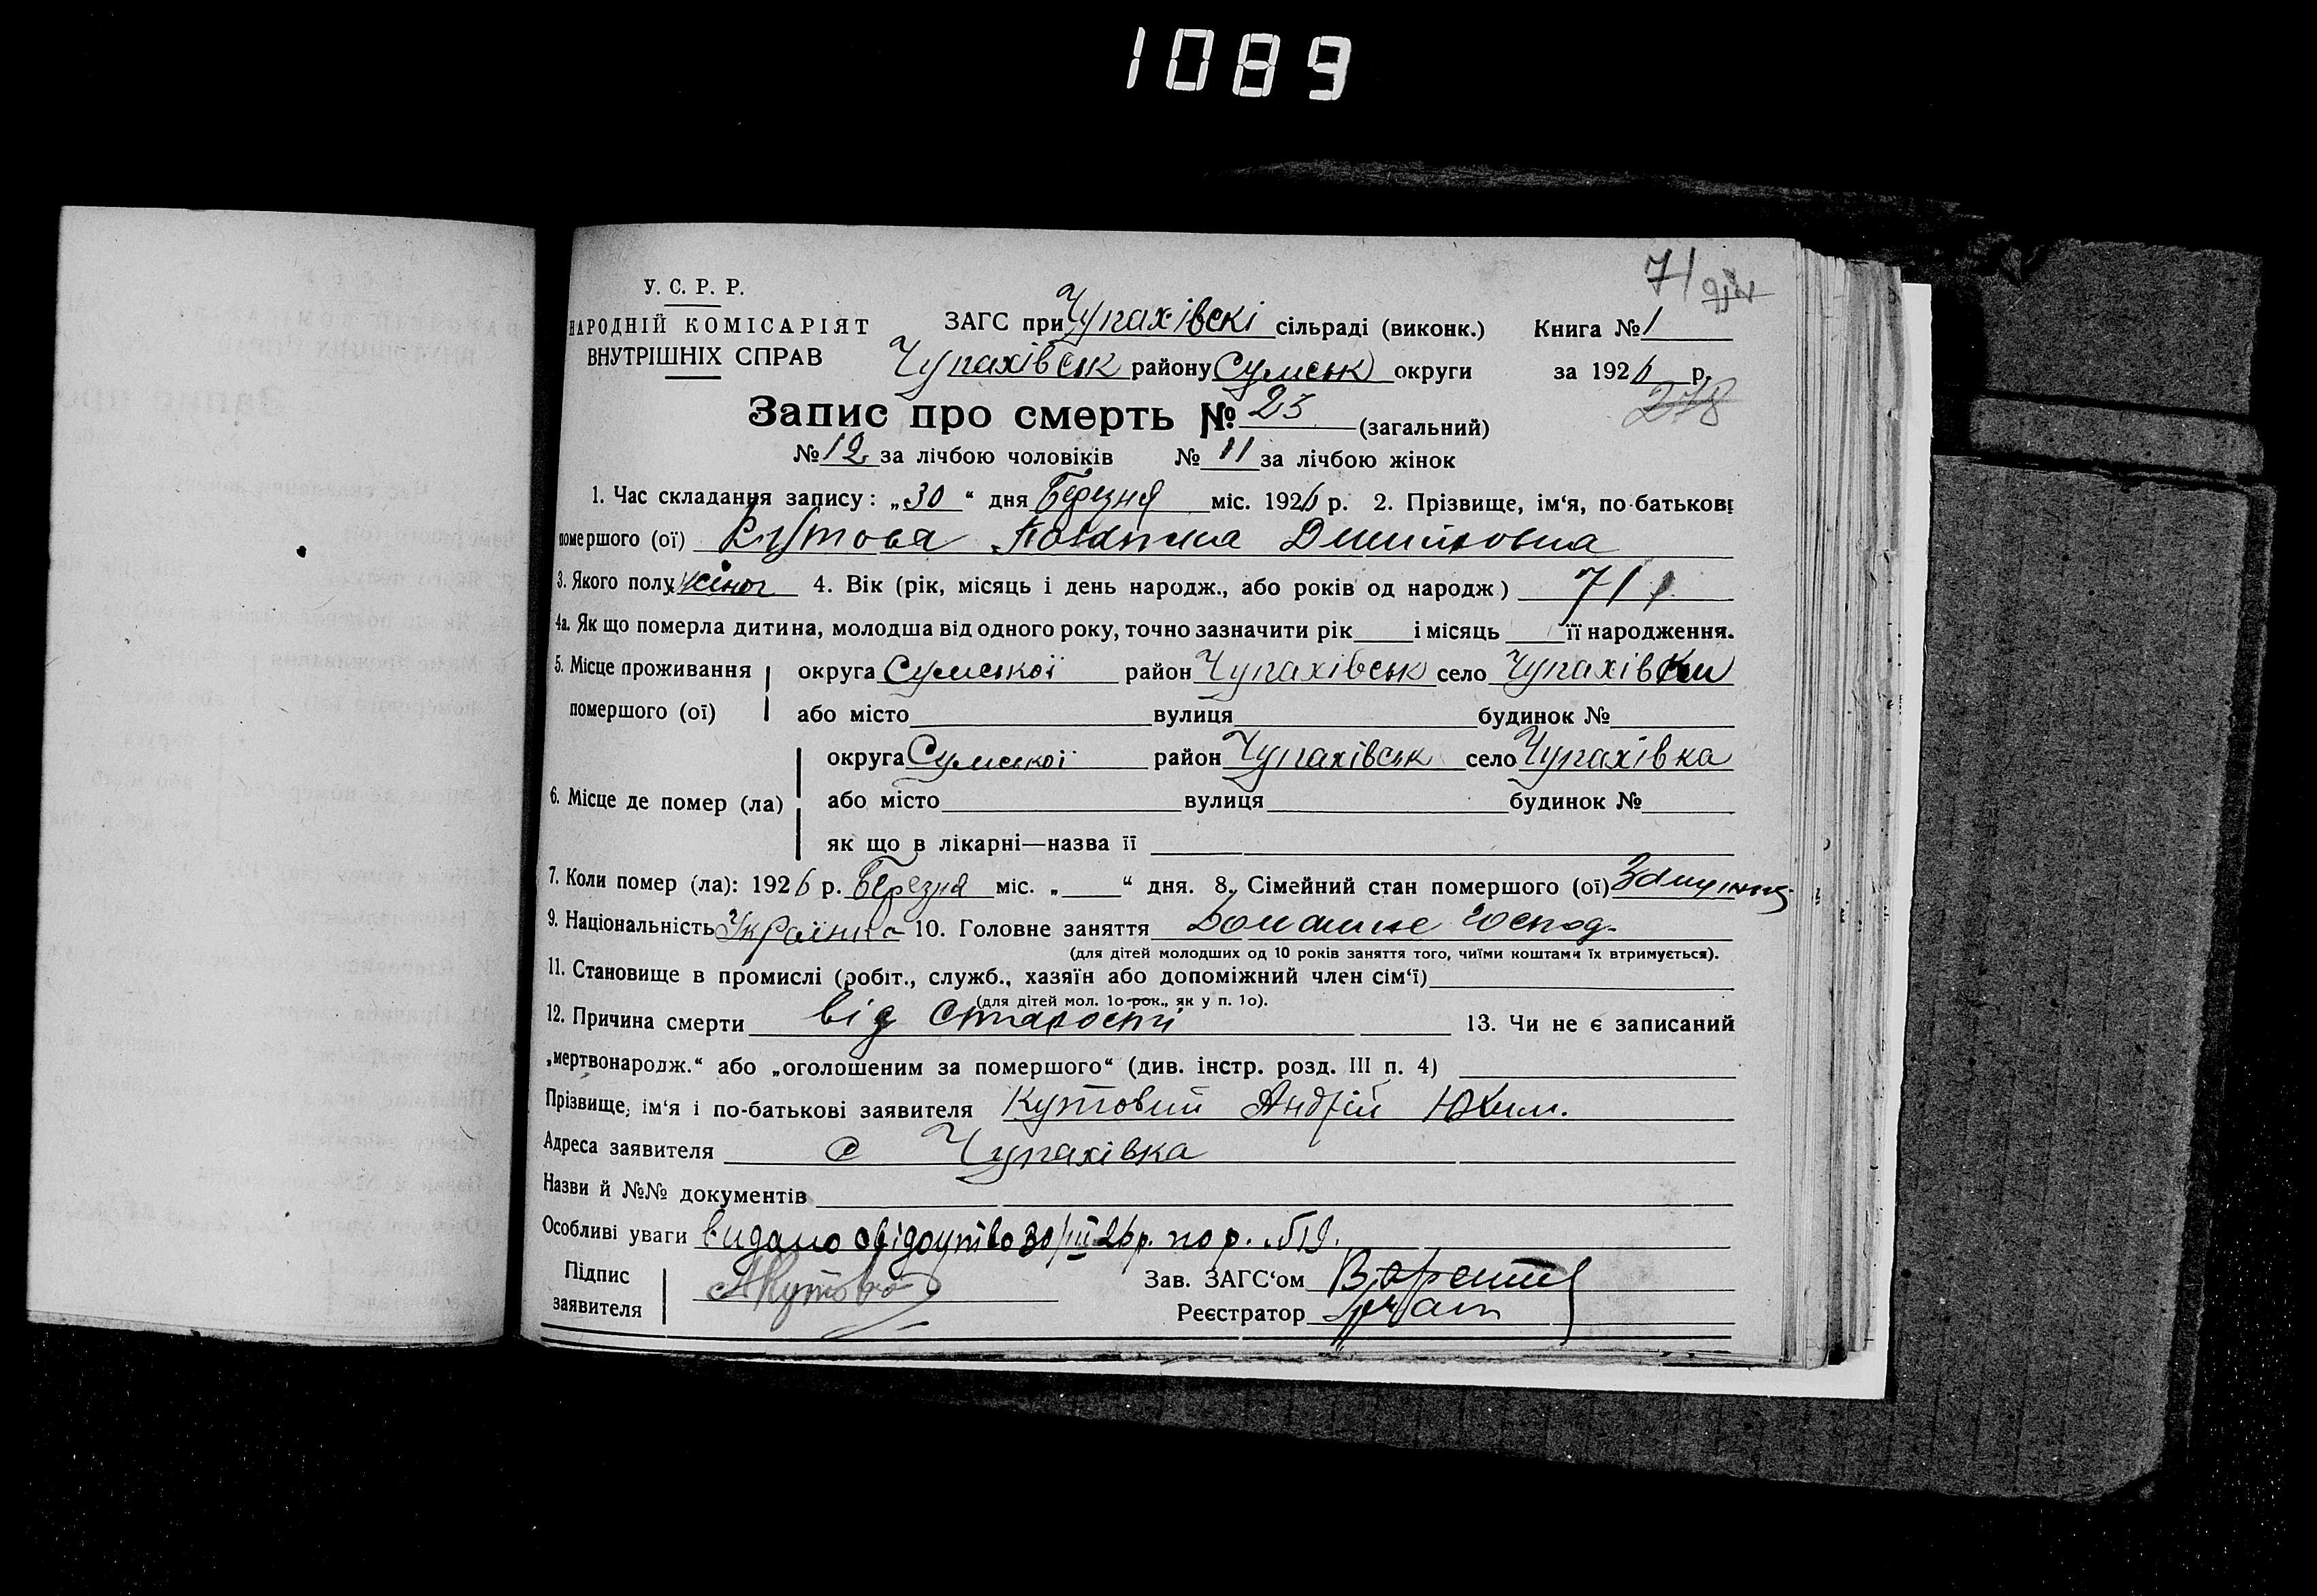 1089
71
У. С. Р. Р.
НАРОДНІЙ КОМІСАРІЯТ
ВНУТРІШНІХ СПРАВ
ЗАГС при Чупахівскі сільраді (виконк.) Книга № 1
Чупахівськ району Сумськ округи за 1926 р.
278
Запис про смерть № 23 (загальний)
№ 12 за лічбою чоловіків № 11 за лічбою жінок
1. Час складання запису: „30“ дня Березня міс. 1926 р. 2. Прізвище, ім‘я, по-батькові
помершого (ої) Кутова Дмитровна
3. Якого полу жіноч 4. Вік (рік, місяць і день народж., або років од народж) 71 р
4а. Як що померла дитина, молодша від одного року, точно зазначити рік і місяць її народження.
5. Місце проживання помершого (ої) округа Сумської район Чупахівськ село Чупахівки
або місто вулиця будинок №
6. Місце де помер (ла) округа Сумської район Чупахівськ село Чупахівка
або місто вулиця будинок №
як що в лікарні—назва її
7. Коли помер (ла): 1926 р. Березня міс. „ “ дня. 8. Сімейний стан помершого (ої)
9. Національність Українка 10. Головне заняття Домашнє господ.
(для дітей молодших од 10 років заняття того, чиїми коштами їх втримується).
11. Становище в промислі (робіт., служб., хазяїн або допоміжний член сім‘ї)
(для дітей мол. 1о рок., як у п. 1о).
12. Причина смерти від старості 13. Чи не є записаний
„мертвонародж.“ або „оголошеним за помершого“ (див. інстр. розд. III п. 4)
Прізвище, ім‘я і по-батькові заявителя Кутовий Андрій Юхим.
Адреса заявителя с Чупахівка
Назви й №№ документів
Особливі уваги видано свідоцтво 30/III 26 р. по р.
Підпис заявителя АКутово
Зав. ЗАГС‘ом
Реєстратор